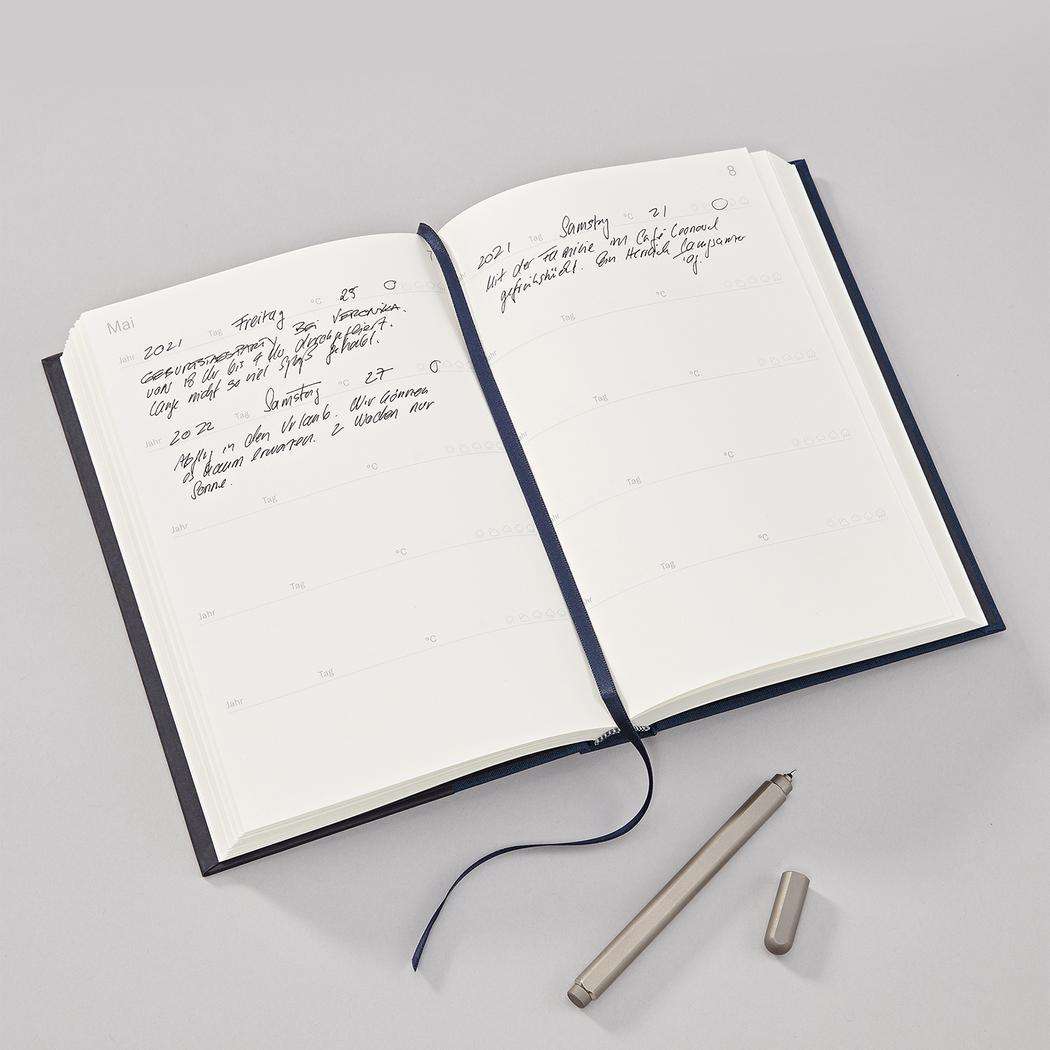 Mai
Jahr 2021 Tag Freitag °C 25
GEBURTSTAGSPARTY BEI VERONIKA.
von 18 Uhr bis 4 Uhr durchgefeiert.
Lange nicht so viel Spaß gehabt.
Jahr 2022 Tag Samstag °C 27
Abflug in den Urlaub. Wir können
es kaum erwarten. 2 Wochen nur
Sonne.
Jahr Tag °C
Jahr Tag °C
Jahr Tag °C
8
2021 Tag Samstag °C 21
Mit der Familie im Café Leonard
gefrühstückt. Ein Herrlich langsamer
Tag.
°C
Tag °C
Tag °C
Tag °C